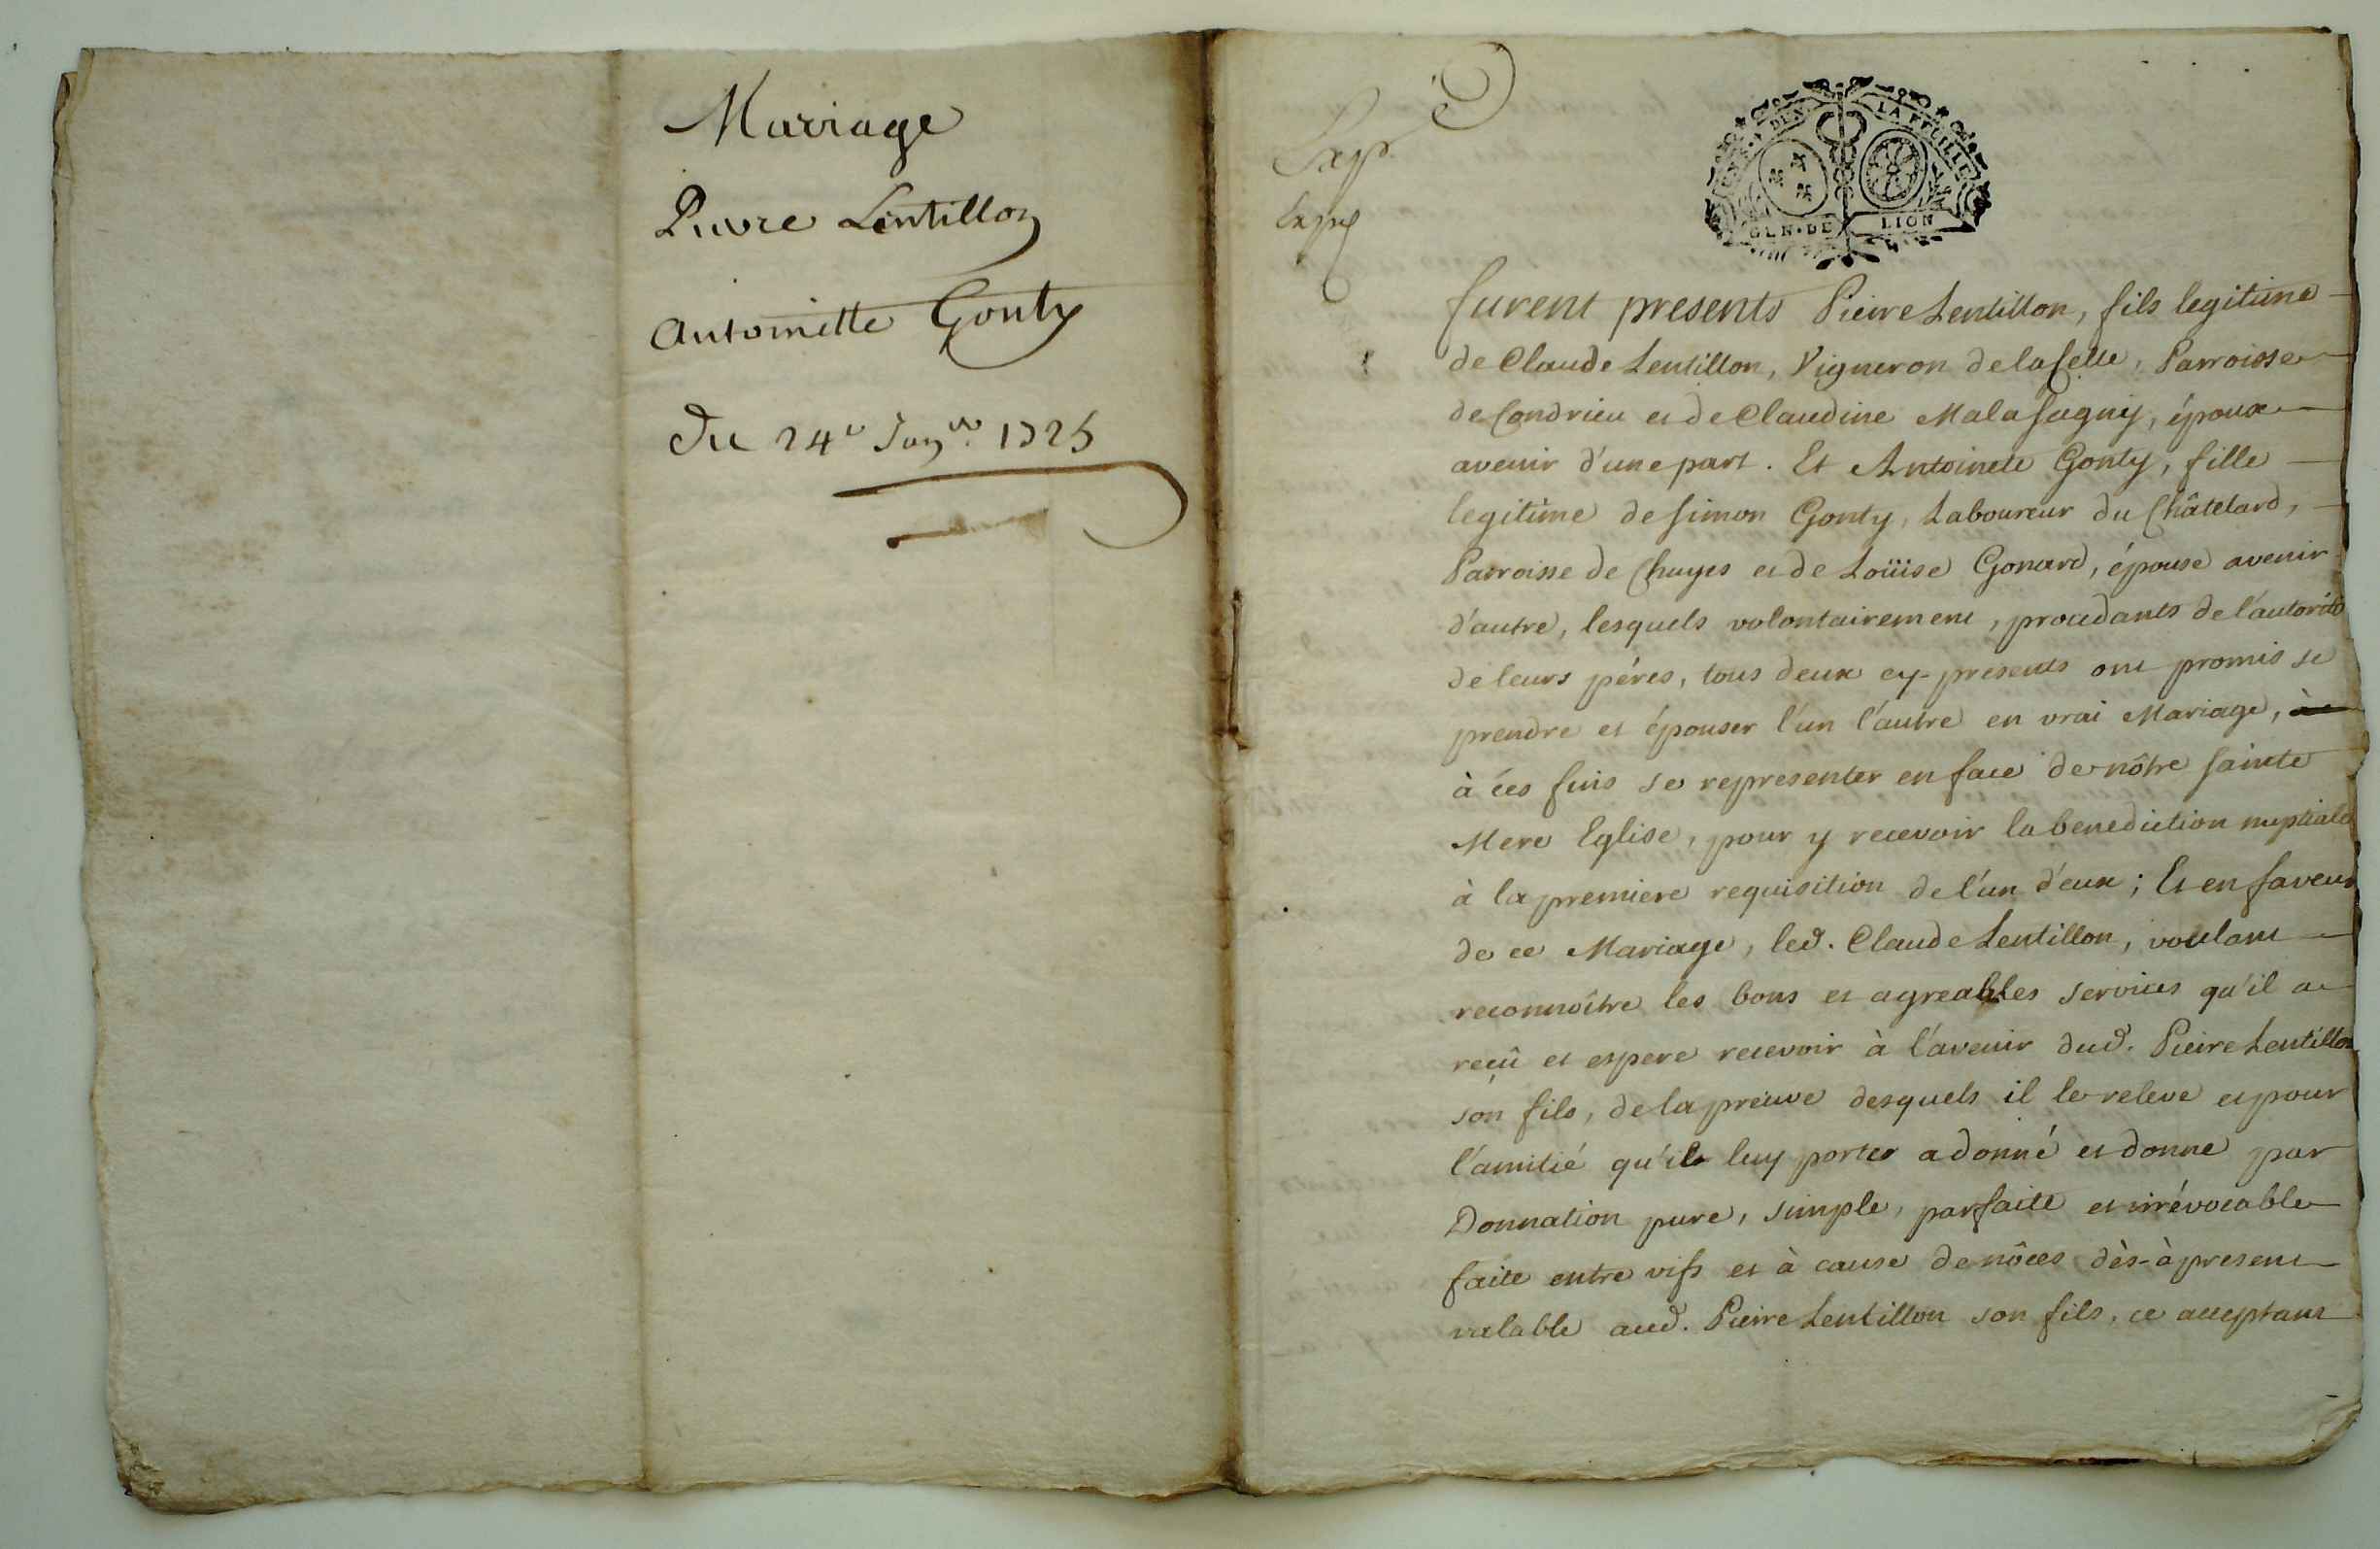 Mariage
Pierre Lentillon
Antoinette Gonty
Du 24e Janv. 1725
Exp.
Exp
LA FEUILLE
GEN·DE LION
furent presents Pierre Lentillon, fils legitime
de Claude Lentillon, Vigneron de la Celle, Parroisse
de Condrieu et de Claudine Malasagny, époux
avenir d'une part. Et Antoinete Gonty, fille
legitime de Simon Gonty, Laboureur du Châtelard,
Parroisse de Chuyes et de Loüise Gonard, épouse avenir
d'autre, lesquels volontairement, procedants de l'autorité
de leurs péres, tous deux cy-presents ont promis se
prendre et épouser l'un l'autre en vrai Mariage,
à ces fins se representer en face de nôtre Sainte
Mere Eglise, pour y recevoir la benediction nuptiale
à la premiere requisition de l'un d'eux; Et en faveur
de ce Mariage, led. Claude Lentillon, voulant
reconnoître les bons et agreables services qu'il a
reçû et espere recevoir à l'avenir dud. Pierre Lentillon
son fils, de la preuve desquels il le releve et pour
l'amitié qu'il luy porte a donné et donne par
Donnation pure, simple, parfaite et irrévocable
faite entre vifs et à cause de nôces dès-à present
valable aud. Pierre Lentillon son fils, ce acceptant